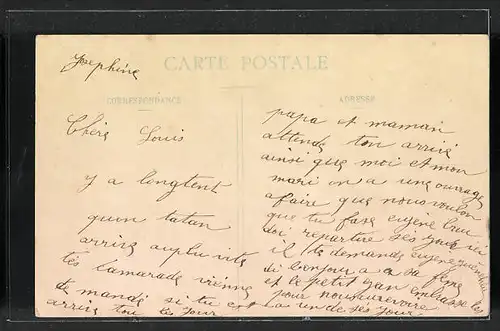 Josephine
CARTE POSTALE
CORRESPONDANCE
ADRESSE
Chère Louis
y a longtent
quon tatan
arrive au plu vite
tes camarade vienne
demandé si tu est
arrive tou les jour
papa et maman
attende ton arrivé
ainsi que moi et mon
mari on a une ouvrage
a faire que nous voulon
que tu fase eugène
doi repartire ses jour ici
il te demande eugene
di bonjour a sa
et le petit embrasse les
pour nous au revoire
a un de ses jour